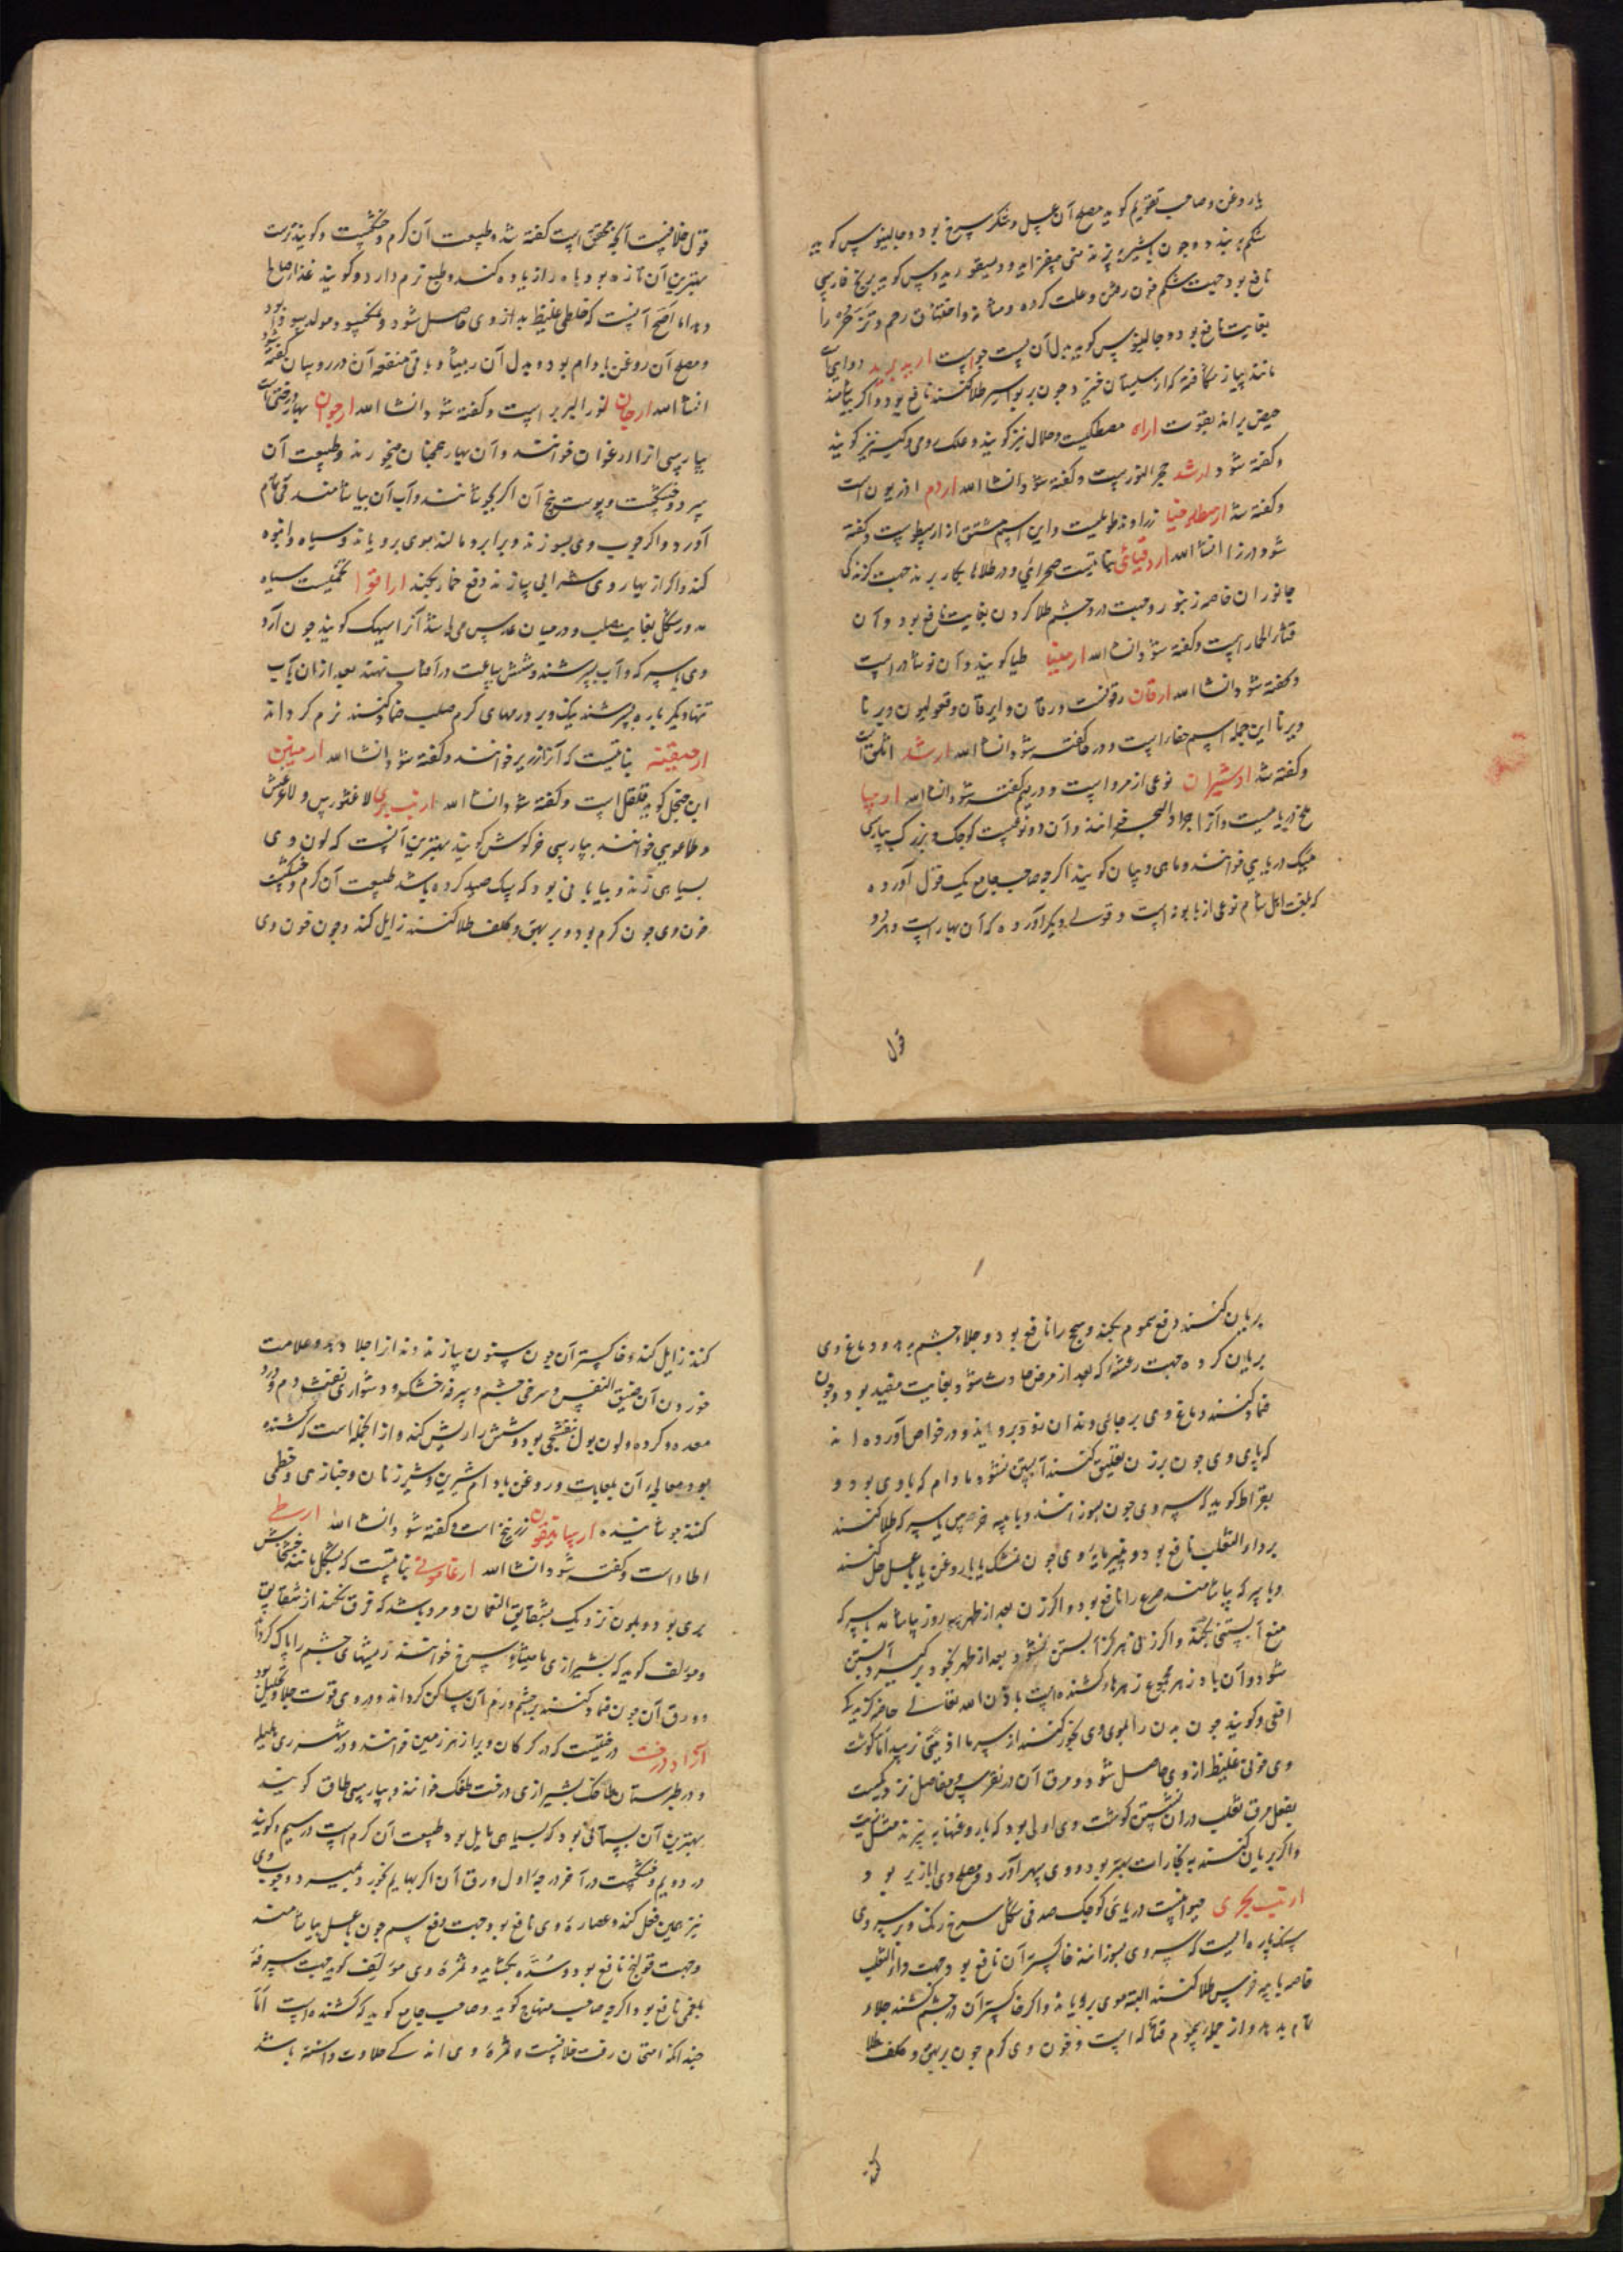 با روغن و صاحب تقویم کوید مصلح آن عسل و شکر سرخ بود و جالینوس کوید
شکم ببندد و چون با شیر بزند منی بیفزاید و دیسقوریدوس کوید برنج فارسی
نافع بود جهت شکم خون رفتن و علت کرده و مثانه و اختناق رحم و تزحر را
بغایت نافع بود و جالینوس کوید بدل آن پست جو است اربد برید دوایی است
مانند پیاز شکافته که از سیستان خیزد و چون بر بواسیر طلا کنند نافع بود و اکر بیاشامند
حیض براند بقوت اراه مصطکیست و حلال نیز کویند و علک رومی و کیه نیز کویند
و کفته شود ارشد حجر النورست و کفته شود انشا الله اردم اذریون است
و کفته شد ارسطلوخیا زراوند طویلست و این اسم مشتق از ارسطوست و کفته
شود در زا انشا الله اردقیانی نباتیست صحرائی و در طلاها بکار برند جهت کزندکی
جانوران خاصه زنبور و جهت درد چشم طلا کردن بغایت نافع بود و آن
قثاء الحمار است و کفته شود انشا الله ارمینیا طیا کویند و آن نوشادر است
و کفته شود انشا الله ارقان رقونست و رقان و ایرقان و قحولیون و یرنا
ویرنا این جمله اسم حنا را است و در حا کفته شود انشا الله ارشد اثلق است
و کفته شد ادشیران نوعی از مرو است و در میم کفته شود انشا الله اربیا
ملخ دریاییست و آنرا جراد البحر خوانند و آن دو نوعست کوچک و بزرک بپارسی
میک دریایی خوانند و ماهی روبیان کویند اکرچه صاحب جامع یک قول آورده
که بلغت اهل شام نوعی از بابونه است و قولی دیکر آورده که آن بهار است و هر دو
قول
قول خلافیست آنچه محقق است کفته شد و طبیعت آن کرم و خشکست و کویند ترست
بهترین آن تازه بود باه را زیاده کند و طبع نرم دارد و کویند غذا صالح
دهد اما اصح آنست که خلطی غلیظ بد از وی حاصل شود و مولد سودا بود
و مصلح آن روغن بادام بود و بدل آن ربیثا و باقی منفعه آن در روبیان کفته شود
انشا الله ارجان لوز البربر است و کفته شود انشا الله ارجوان بهار درختی است
بپارسی انرا ارغوان خوانند و آن بهار همچنان میخورند و طبیعت آن
سرد و خشکست و پوست بیخ آن اکر بجوشانند و آب آن بیاشامند قی تمام
آورد و اکر چوب وی بسوزند و بر ابرو مالند موی برویاند و سیاه و انبوه
کند و اکر از بهار وی شرابی بسازند دفع خمار بکند اراقوا تخمیست سیاه
مدور شکل بغایت صلب و در میان عدس می باشد آنرا سیهک کویند چون آرد
وی با سرکه و آب بسرشند و شش ساعت در آفتاب نهند بعد از آن با آب
تنها دیکر باره بسرشند نیک و بر ورمهای کرم صلب ضماد کنند نرم کرداند
ارصیقنه نباتیست که آنرا زریر خوانند و کفته شود انشا الله ارمینین
ابن جلجل کوید قلقل است و کفته شود انشا الله ارنب بری لاغثورس و لاغوغش
و طاغوبی خوانند بپارسی خرکوش کویند بهترین آنست که لون وی
بسیاهی زند و بیابانی بود که سک صید کرده باشد طبیعت آن کرم و خشکست
خون وی چون کرم بود و بر بهق و کلف طلا کنند زایل کند و چون خون وی
بریان کنند دفع سموم بکند و سحج را نافع بود و جلاء چشم بدهد و دماغ وی
بریان کرده جهت رعشه که بعد از مرض حادث شود بغایت مفید بود و چون
ضماد کنند دماغ وی بر جای دندان زود برویاند و در خواص آورده اند
که پای وی چون بر زن تعلیق کنند آبستن نشود مادام که با وی بود و
بقراط کوید که سر وی چون بسوزانند و با پیه خرس یا سرکه طلا کنند
بر داء الثعلب نافع بود و پنیر مایه وی چون خشک با روغن یا با عسل حل کنند
و با سرکه بیاشامند صرع را نافع بود و اکر زن بعد از طهر سه روز بیاشامد با سرکه
منع آبستنی بکند و اکر زنی هرکز آبستن نشود بعد از طهر بخود برکیرد آبستن
شود و آن پادزهر مجموع زهرها کشنده است باذن الله تعالی خاصه کزیدکی
افعی و کویند چون بدن را بموی وی بخور کنند از سرما اذیتی نرسد اما کوشت
وی خونی غلیظ از وی حاصل شود و مرق آن در نقرس و مفاصل نزدیکست
بفعل مرق ثعلب در ان نشستن کوشت وی اولی بود که با روغنها بپزند
و اکر بریان کنند به بخارات بهتر بود و وی سهر آورد و مصلح وی ابازیر بود
ارنب بحری حیوانیست دریائی کوچک صدفی شکل سرخ رنک و بر سر وی
سنک پاره ایست که سر وی بسوزانند خاکستر آن نافع بود جهت داء الثعلب
خاصه با پیه خرس طلا کنند البته موی برویاند و اکر خاکستر آن در چشم کشند جلاء
تمام بدهد و از جمله سموم قتاله است و خون وی کرم چون بر بهق و کلف طلا
کند
کنند زایل کند و خاکستر آن چون سنون سازند دندانرا جلا دهد و علامت
خوردن آن ضیق النفس و سرخی چشم و سرفه خشک و دشواری نفث دم و درد
معده و کرده و لون بول بنفشجی بود و شش را ریش کند و از انجمله است که کشنده
بود معالجه آن بلعابات و روغن بادام شیرین و شیر زنان و خبازی و خطمی
کنند جوشانیده ارسانیقون زرنیخ است و کفته شود انشا الله ارسطی
اطاء است و کفته شود انشا الله ارغامونی نباتیست که بشکل مانند خشخاش
بری بود و بلون نزدیک بشقایق النعمان و مردم باشد که فرق نکنند از شقایق
و مؤلف کوید که بشیرازی مامیثاء سرخ خوانند ریشهای چشم را پاک کرداند
و ورق آن چون ضماد کنند بر چشم ورم آن ساکن کرداند و در وی قوت جلا و تحلیل بود
ازاد درخت درختیست که در کرکان ویرا زهر زمین خوانند و در شهر ری هلیله
و در طبرستان طاحک بشیرازی درخت طغک خوانند و بپارسی طاق کویند
بهترین آن بستانی بود که بسیاهی مایل بود طبیعت آن کرم است در سیم و کویند
در دویم و خشکست در آخر درجه اول ورق آن اکر بهایم بخورد بمیرد و چوب وی
نیز همین فعل کند و عصاره وی نافع بود جهت دفع سم چون با عسل بیاشامند
و جهت قولنج نافع بود و سده بکشاید و ثمره وی مؤلف کوید جهت سرفه
بلغمی نافع بود اکرچه صاحب منهاج کوید و صاحب جامع کوید که کشنده است اما
چندانکه امتحان رفت خلافیست و ثمره وی اندکی حلاوت داشته باشد